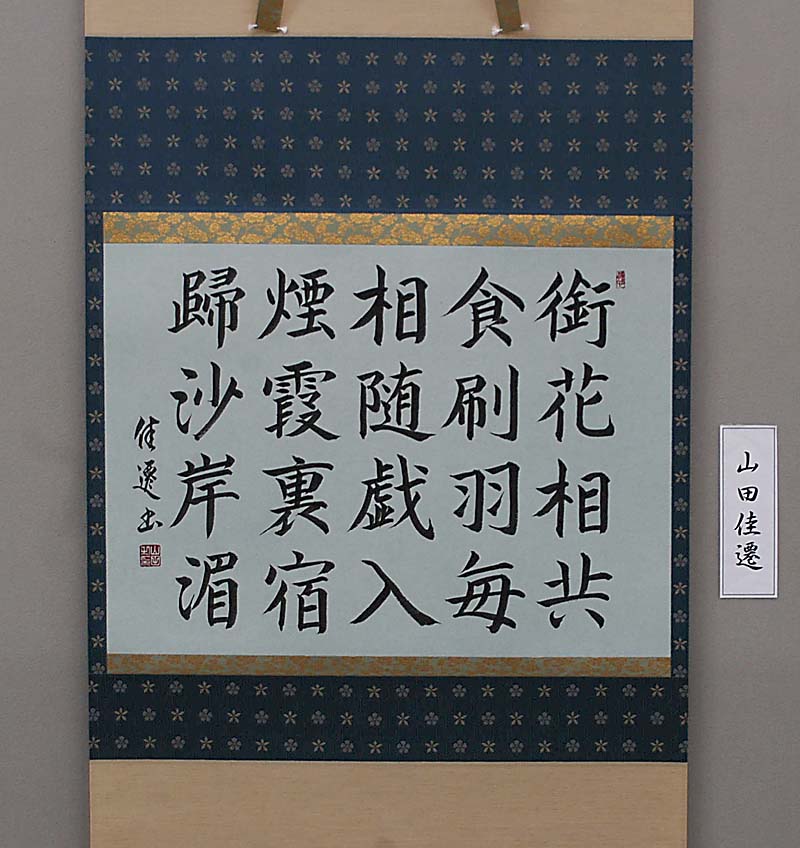 銜花相共
食刷羽每
相随戯入
煙霞裏宿
歸沙岸湄
佳遷書
山田佳遷